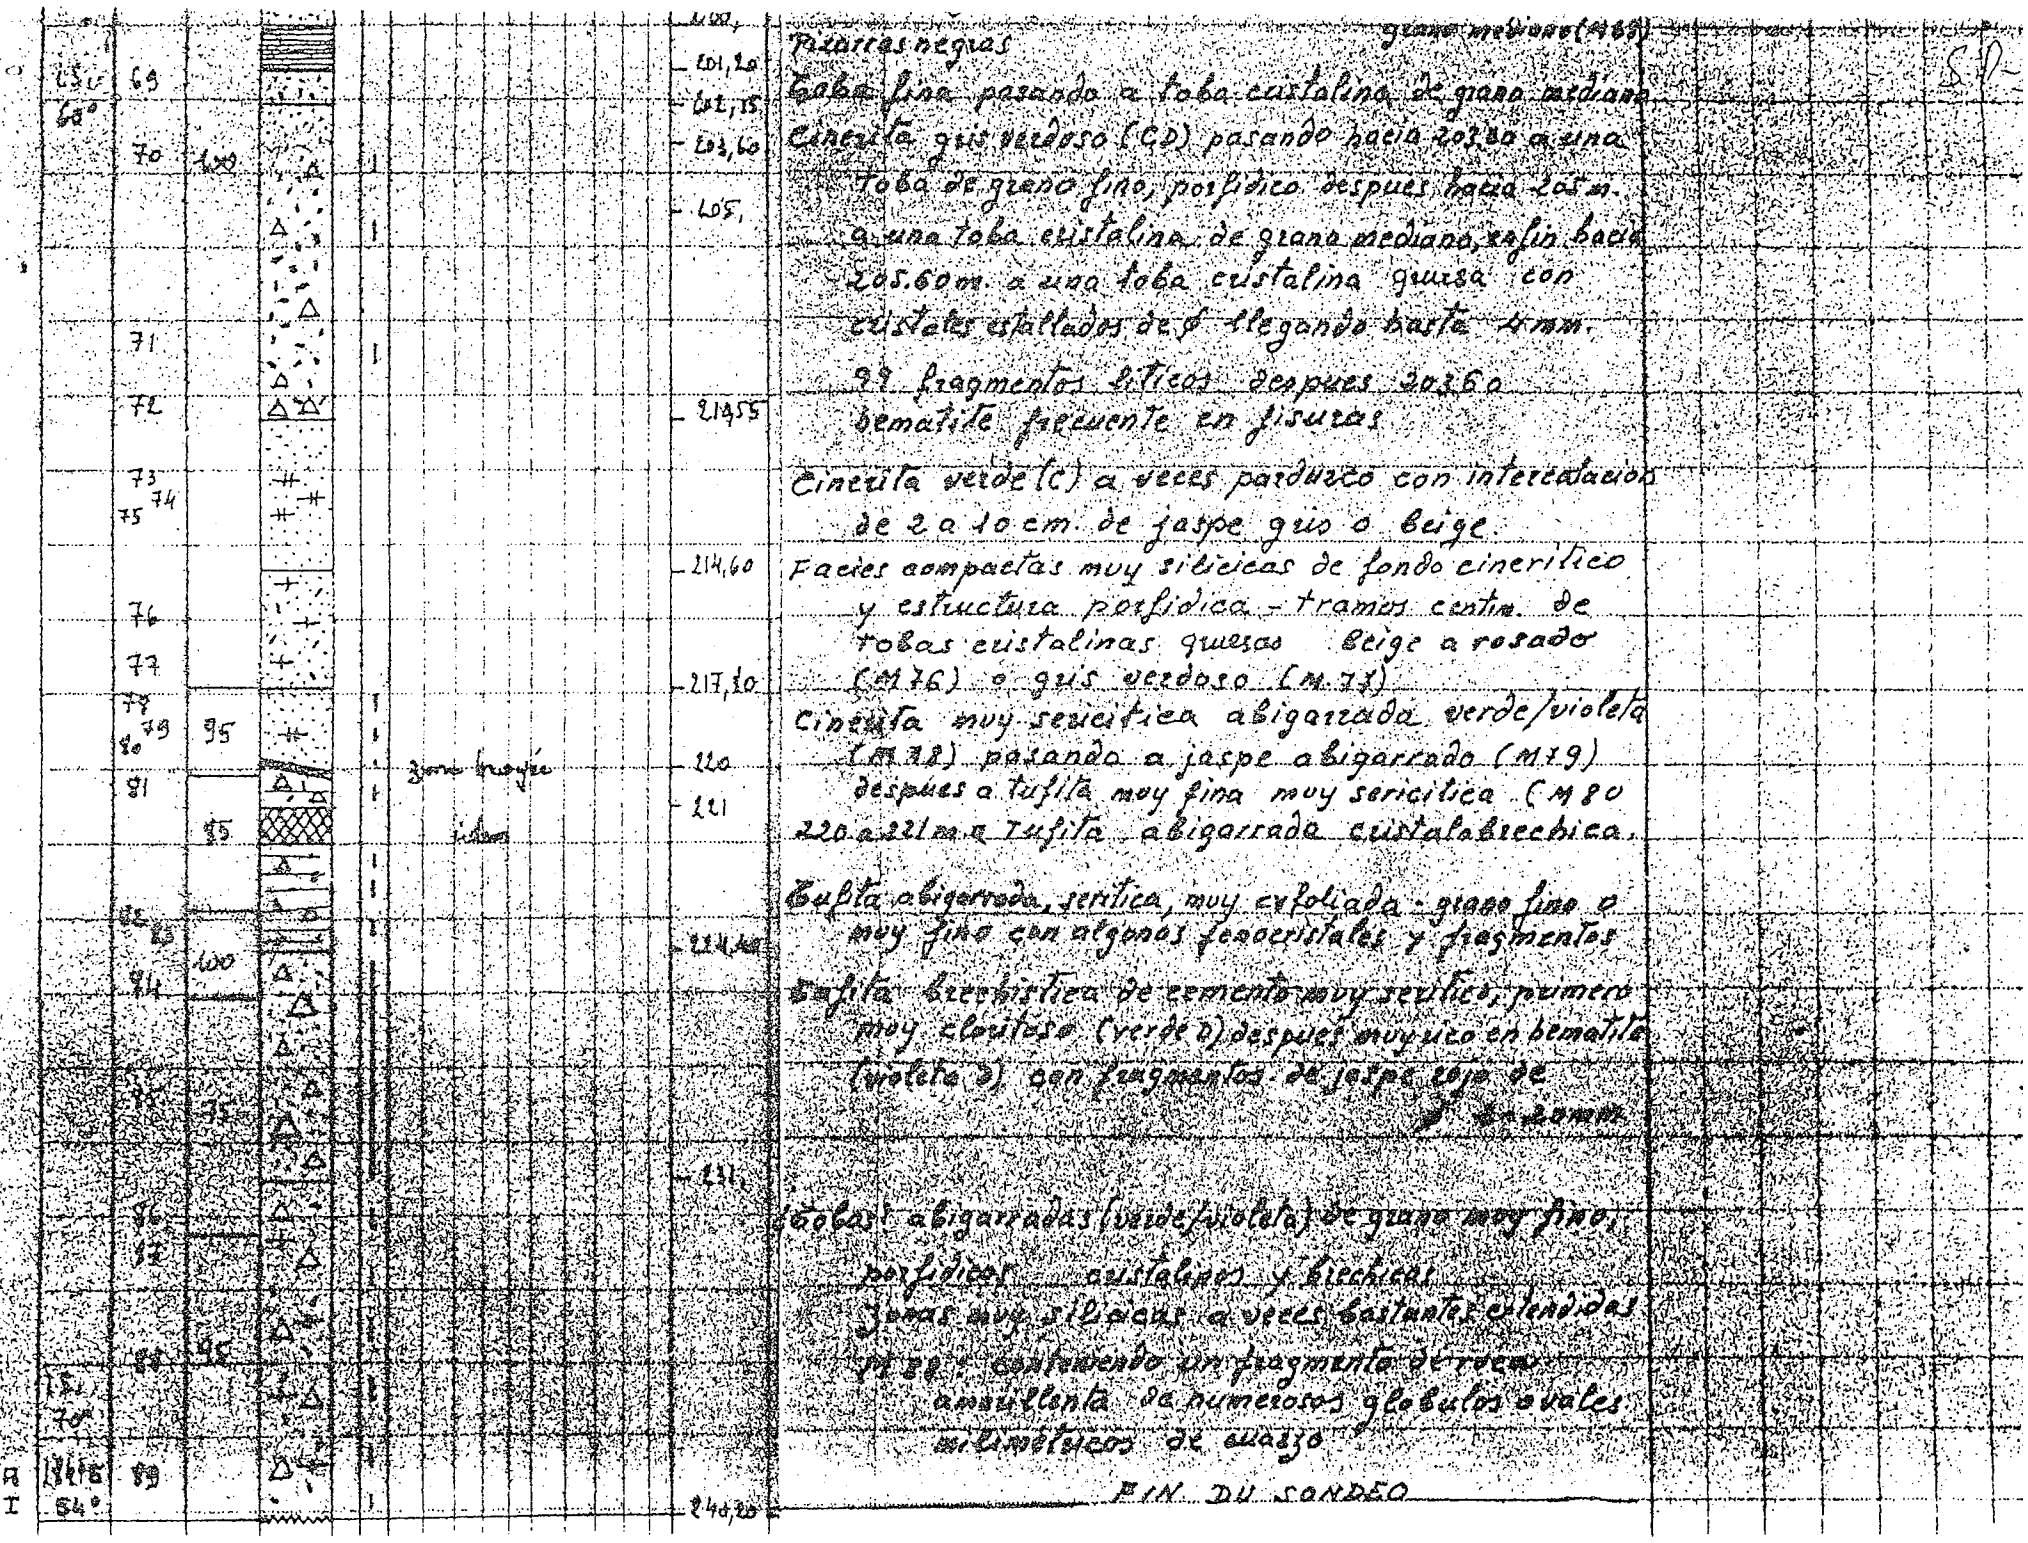 grano mediano (M 68)
Pizarras negras
S.D-
201,20
69
Toba fina pasando a toba cristalina de grano mediano
60°
202,15
Cinerita gris verdoso (CD) pasando hacia 203,60 a una
203,60
70
100
toba de grano fino, porfidico despues hacia 205 m.
205,
a una toba cristalina de grano mediano, enfin hacia
205.60 m. a una toba cristalina gruesa con
cristales estallados de ø llegando hasta 4 mm.
71
99 fragmentos liticos despues 20360
72
hematite frecuente en fisuras
73
74
75
Cinerita verde (C) a veces parduzco con intercalacion
de 2 a 10 cm. de jaspe gris o beige.
214,60
Facies compactas muy silicicas de fondo cineritico
76
y estructura porfidica - tramos centim. de
tobas cristalinas gruesas beige a rosado
77
(M 76) o gris verdoso (M 77)
217,80
78
Cinerita muy sericitica abigarrada verde/violeta
79
80
95
(M 78) pasando a jaspe abigarrado (M 79)
zone broyée
220
81
despues a tufita muy fina muy sericitica (M 80
221
85
idem
220 a 221 m a Tufita abigarrada cristalabrechica.
Tufita abigarrada, seritica, muy exfoliada - grano fino o
82
83
muy fino con algonos fenocristales y fragmentos
224,40
100
84
Tufita brechistica de cemento muy seritico, primero
muy cloritoso (verde D) despues muy rico en hematite
85
75
(violeta D) con fragmentos de jaspe rojo de
20 mm
231,
86
(Tobas) abigarradas (verde/violeta) de grano muy fino,
87
porfidicos cristalinos y brechicas
Zonas muy silicicas a veces bastantes extendidas
88
95
M 88 : conteniendo un fragmento de roca
70°
amarillenta de numerosos globulos ovales
milimétricos de cuarzo
A
89
I
54°
FIN DU SONDEO
240,20